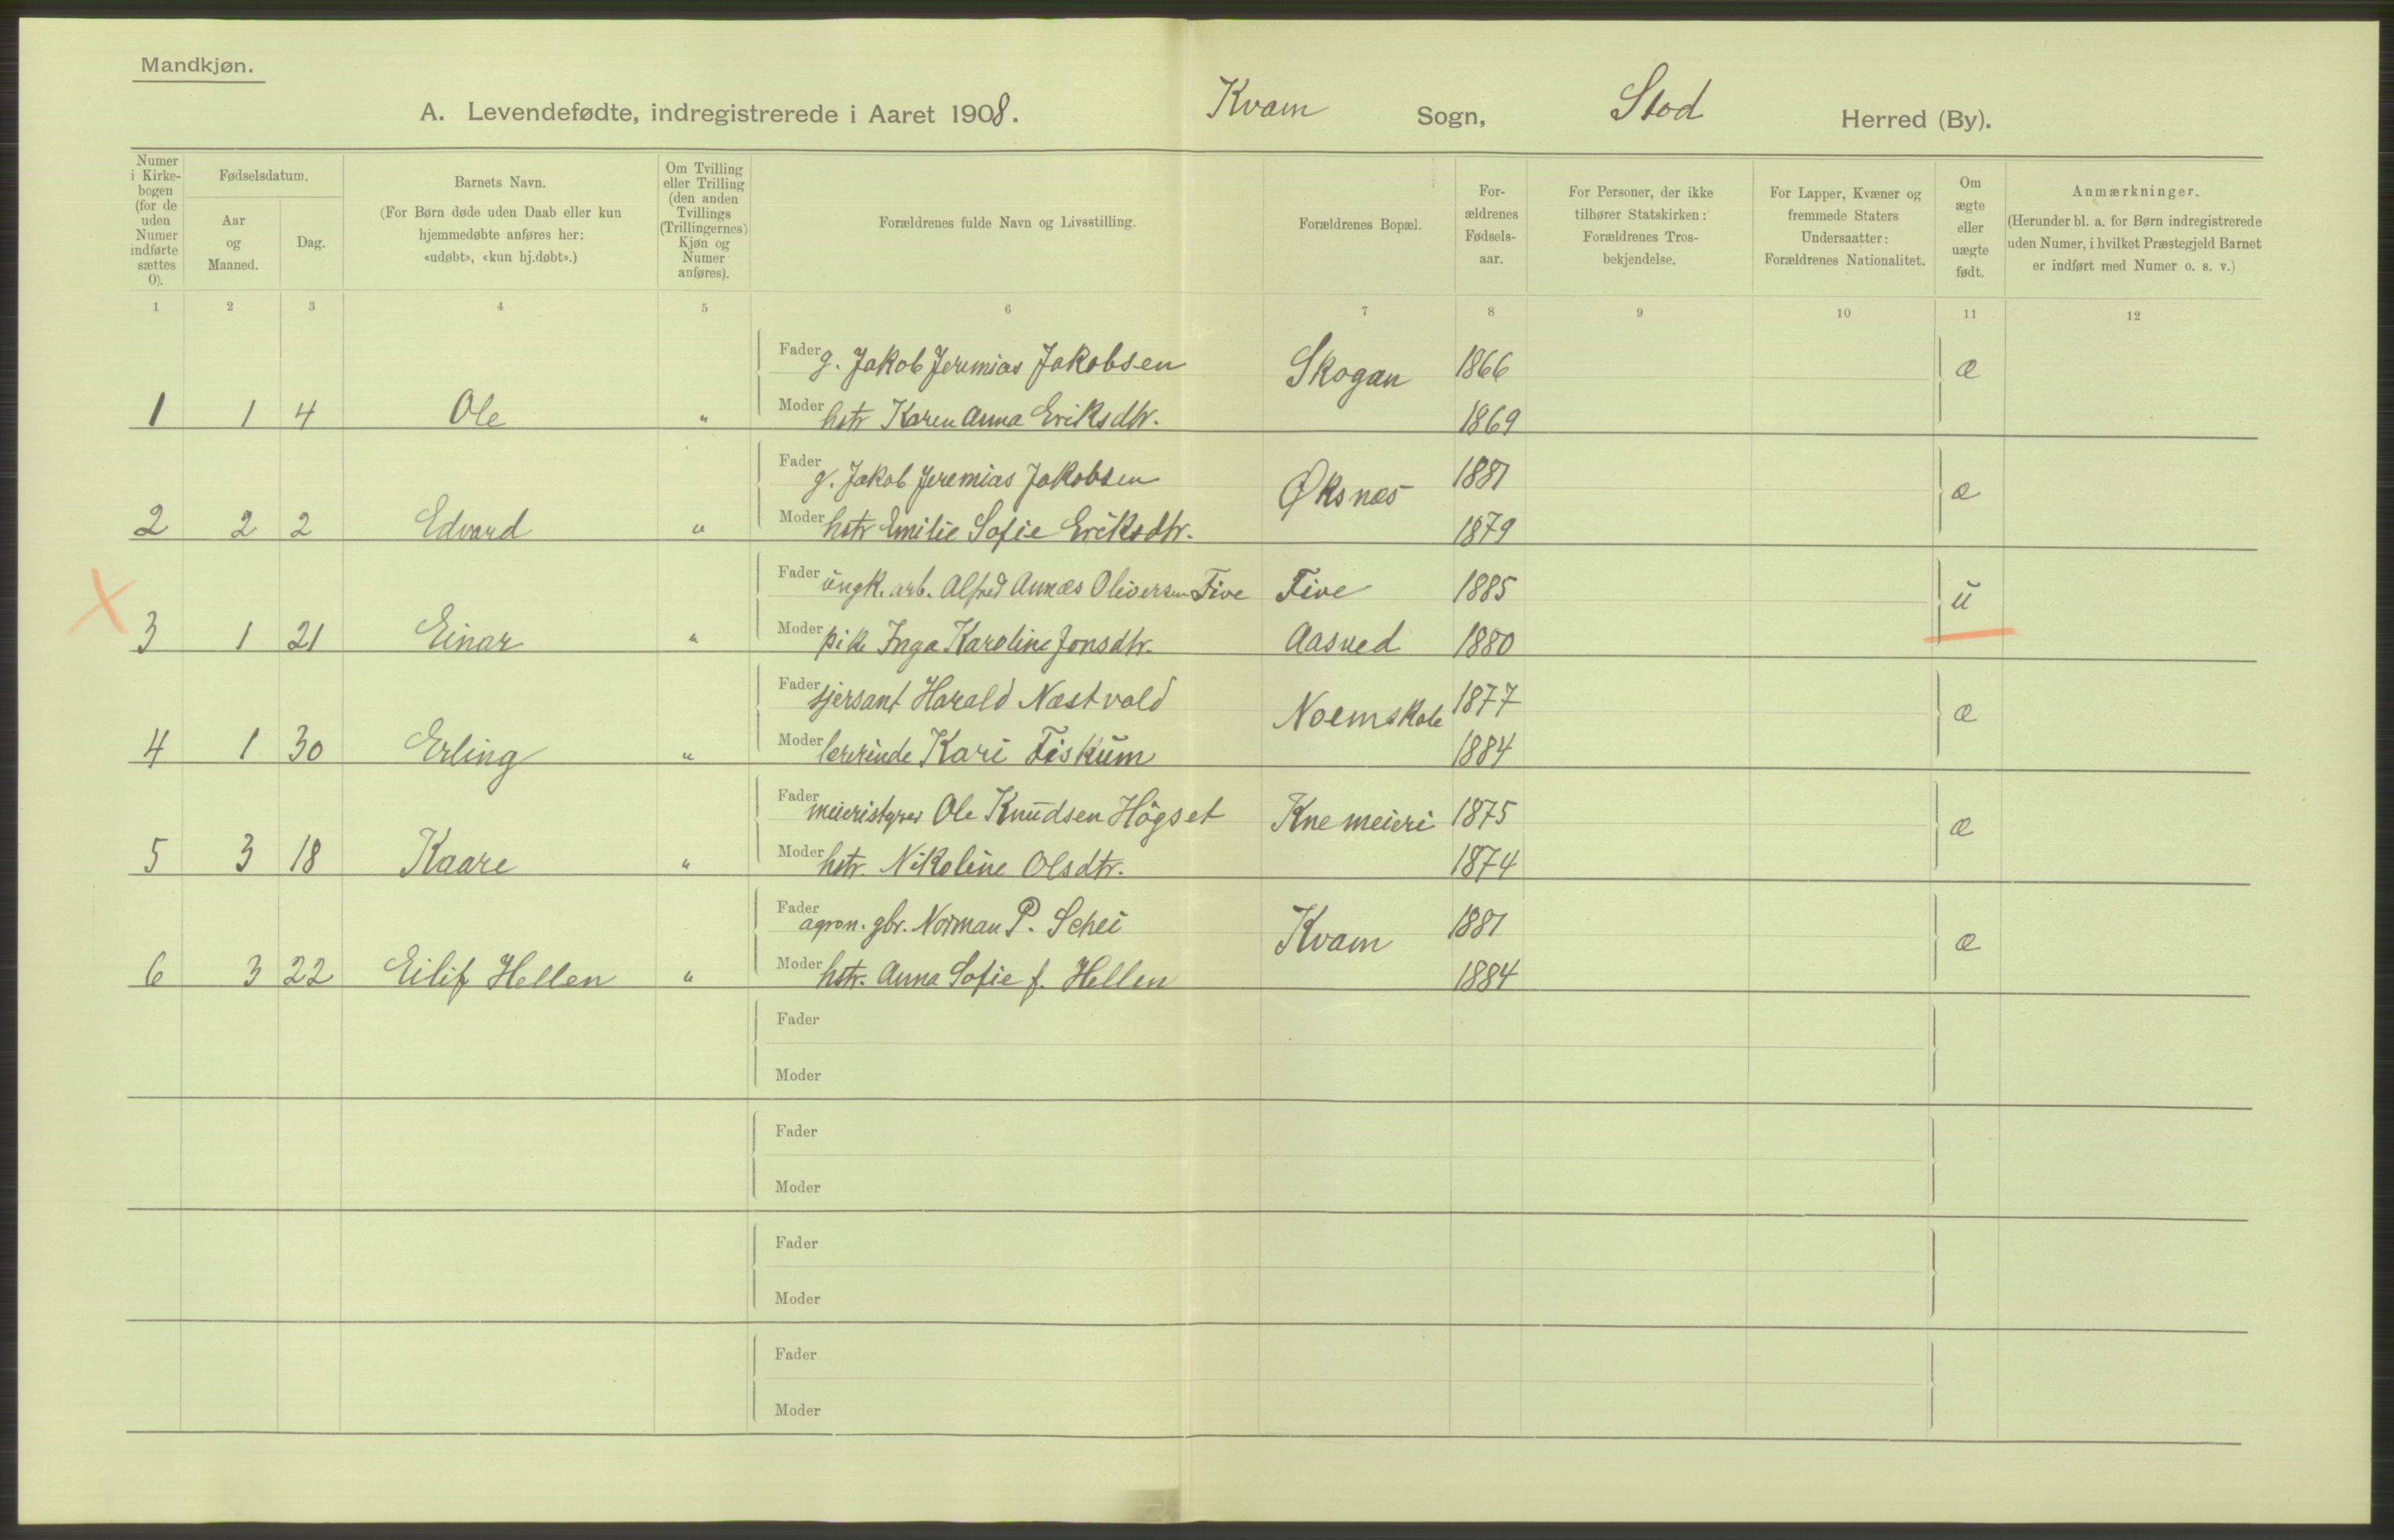 Mandkjøn.
A. Levendefødte, indregistrerede i Aaret 1908. Kvam Sogn, Stod Herred (By).
Numer i Kirke-bogen (for de uden Numer indførte sættes 0).
Fødselsdatum.
Aar og Maaned.
Dag.
Barnets Navn.
(For Børn døde uden Daab eller kun hjemmedøbte anføres her: «udøbt», «kun hj.døbt».)
Om Tvilling eller Trilling (den anden Tvillings (Trillingernes) Kjøn og Numer anføres).
Forældrenes fulde Navn og Livsstilling.
Forældrenes Bopæl.
For-ældrenes Fødsels-aar.
For Personer, der ikke tilhører Statskirken: Forældrenes Tros-bekjendelse.
For Lapper, Kvæner og fremmede Staters Undersaatter: Forældrenes Nationalitet.
Om ægte eller uægte født.
Anmærkninger.
(Herunder bl. a. for Børn indregistrerede uden Numer, i hvilket Præstegjeld Barnet er indført med Numer o. s. v.)
1 2 3 4 5 6 7 8 9 10 11 12
Fader g. Jakob Jeremias Jakobsen Skogan 1866 æ
1 1 4 Ole " Moder hstr Karen Anna Eriksdtr. 1869
Fader g. Jakob Jeremias Jakobsen Øksnæs 1881 æ
2 2 2 Edvard " Moder hstr Emilie Sofie Eriksdtr. 1879
Fader ungk. arb. Alfred Annæs Oliversen Five Five 1885 u
X 3 1 21 Einar " Moder pike Inga Karoline Jonsdtr. Aasved 1880
Fader sjersant Harald Næstvold Noemskole 1877 æ
4 1 30 Erling " Moder lærerinde Kari Fiskum 1884
Fader meieristyrer Ole Knudsen Högset Kne meieri 1875 æ
5 3 18 Kaare " Moder hstr. Nikoline Olsdtr. 1874
Fader agron. gbr. Norman P. Schei Kvam 1881 æ
6 3 22 Eilif Hellen " Moder hstr. Anna Sofie f. Hellen 1884
Fader
Moder
Fader
Moder
Fader
Moder
Fader
Moder